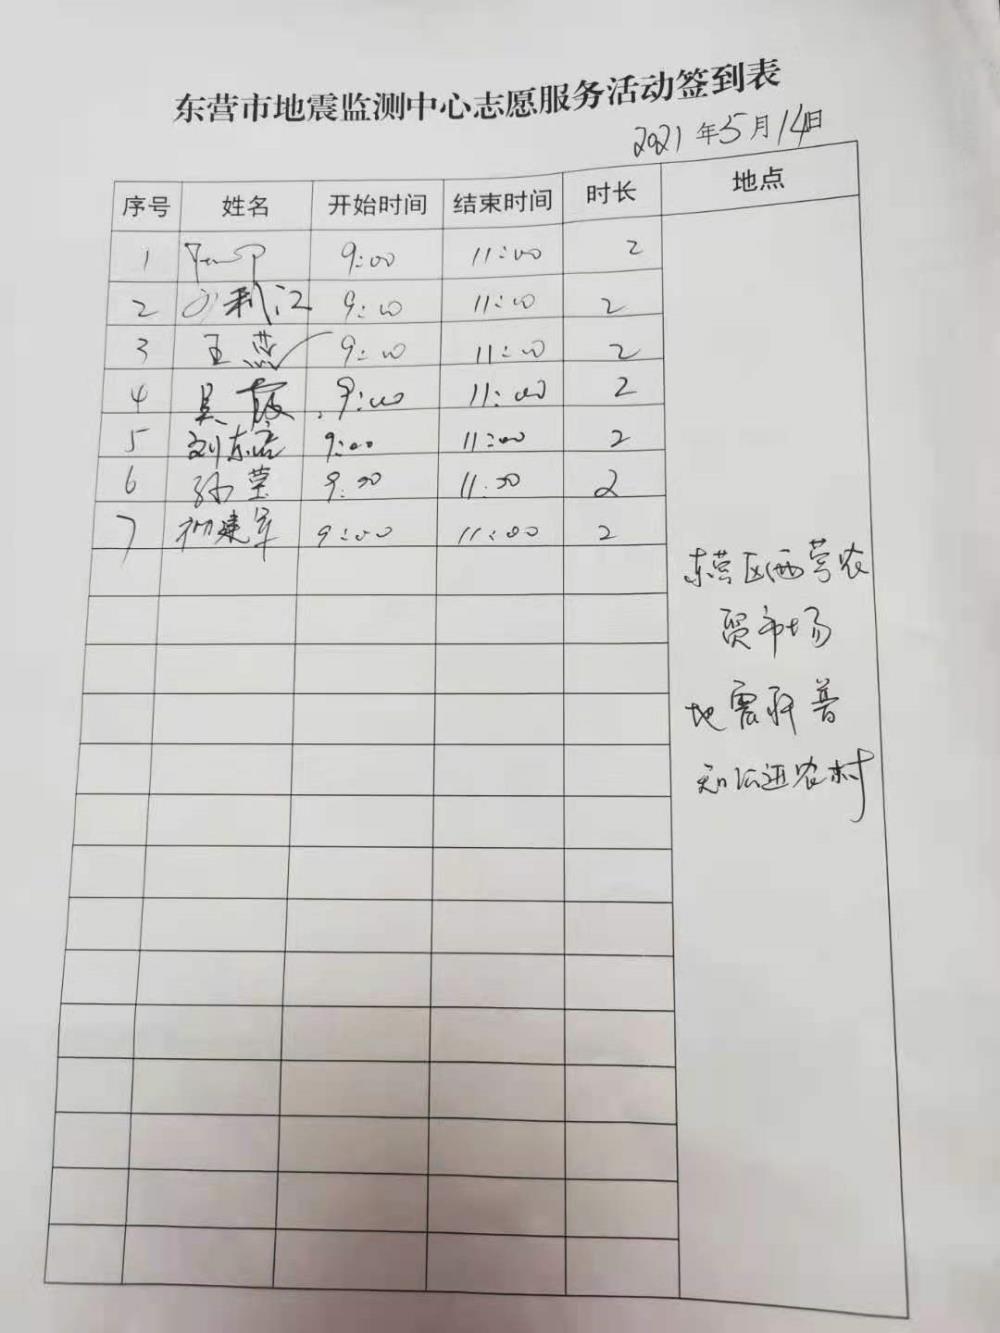 东营市地震监测中心志愿服务活动签到表
2021年5月14日
序号 姓名 开始时间 结束时间 时长 地点
1 9:00 11:00 2
2 刘利江 9:00 11:00 2
3 王燕 9:00 11:00 2
4 吴霞 9:00 11:00 2
5 刘东 9:00 11:00 2
6 孙莹 9:00 11:00 2
7 建军 9:00 11:00 2
东营区西营农
贸市场
地震科普
知识进农村